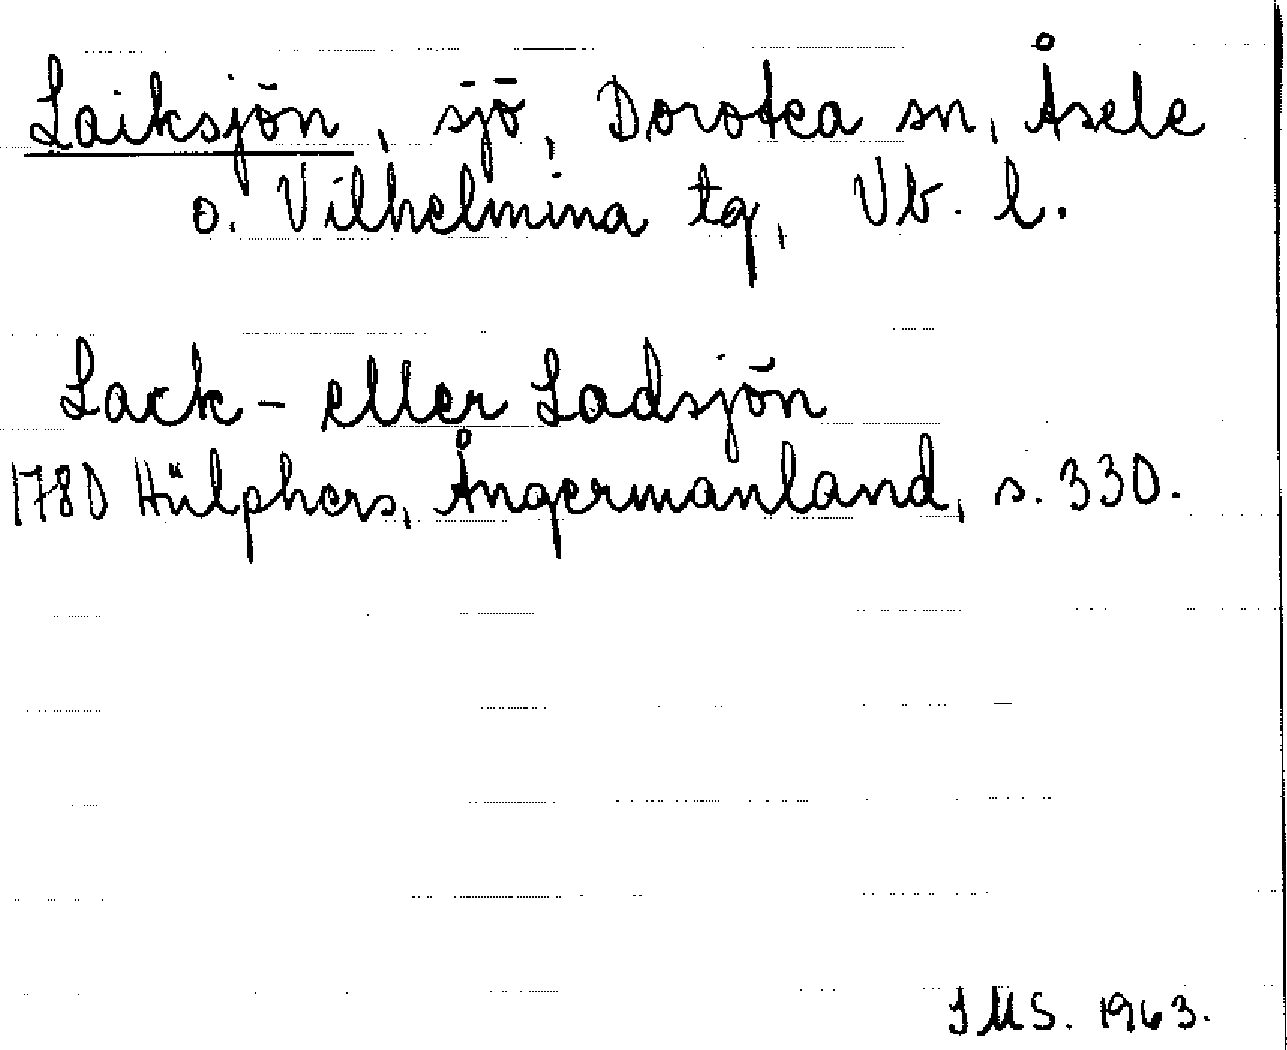 Laiksjön, sjö, Dorotea sn, Åsele
o. Vilhelmina tg, Vb. l.
Lack- eller Ladsjön
1780 Hülphers, Ångermanland, s. 330.
IMS. 1963.